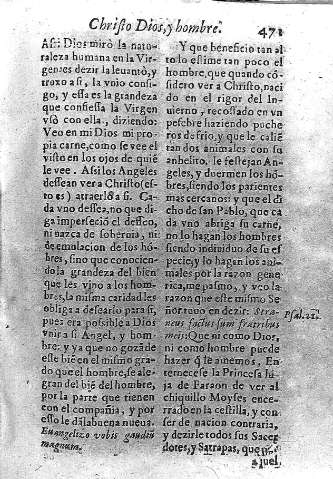 Christo Dios, y hombre.
471
Asi: Dios mirò la natu-
raleza humana en la Vir-
gen: es dezir la leuantò, y
troxo a si, la vnio consi-
go, y essa es la grandeza
que confiessa la Virgen
vsò con ella, diziendo:
Veo en mi Dios mi pro-
pia carne, como se vee el
visto en los ojos de quiē
le vee. Assi los Angeles
dessean ver a Christo (es-
to es) atraerlo a si. Ca-
da vno dessea, no que di-
ga imperfeciō el desseo,
ni nazca de soberuia, ni
de emulacion de los hō-
bres, sino que conocien-
do la grandeza del bien
que les vino a los hōbre-
s, la misma caridad les
obliga a dessearlo para si,
pues era possible a Dios
vnir a si Angel, y hom-
bre: y ya que no gozā de
esse biē en el mismo gra-
do que el hombre, se ale-
gran del biē del hombre,
por la parte que tienen
con el compañia, y por
esso le dā la buena nueua.
Euangelizo vobis gaudiū
magnum.
Y que beneficio tan al
to lo estime tan poco el
hombre, que quando cō-
sidero ver a Christo, naci
do en el rigor del In-
uierno, recostado en vn
pesebre haziendo puche
ros de frio, y que le caliē
tan dos animales con su
anhelito, le festejan An-
geles, y duermen los hō-
bres, siendo los parientes
mas cercanos: y que el di
cho de san Pablo, que ca
da vno abriga su carne,
no lo hagan los hombres
siendo indiuiduo de su es
pecie, y lo hagen los ani-
males por la razon gene-
rica, me pasmo, y veo la
razon que este mismo Se
ñor tuuo en dezir: Extra-
neus factus sum fratribus
meis: Que ni como Dios,
ni como hombre puede
hazer q̄ le amemos. En-
ternecese la Princesa hi-
ja de Faraon de ver al
chiquillo Moyses ence-
rrado en la cestilla, y con
ser de nacion contraria,
y dezirle todos sus Sacer
dotes, y Satrapas, que
aquel.
Psal.